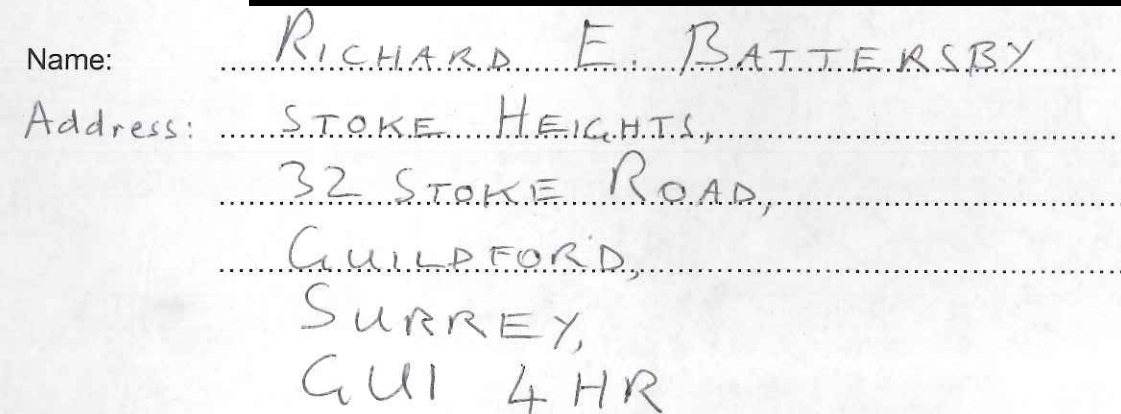 Name: RICHARD E. BATTERSBY
Address: STOKE HEIGHTS,
32 STOKE ROAD,
GUILDFORD,
SURREY,
GU1 4HR